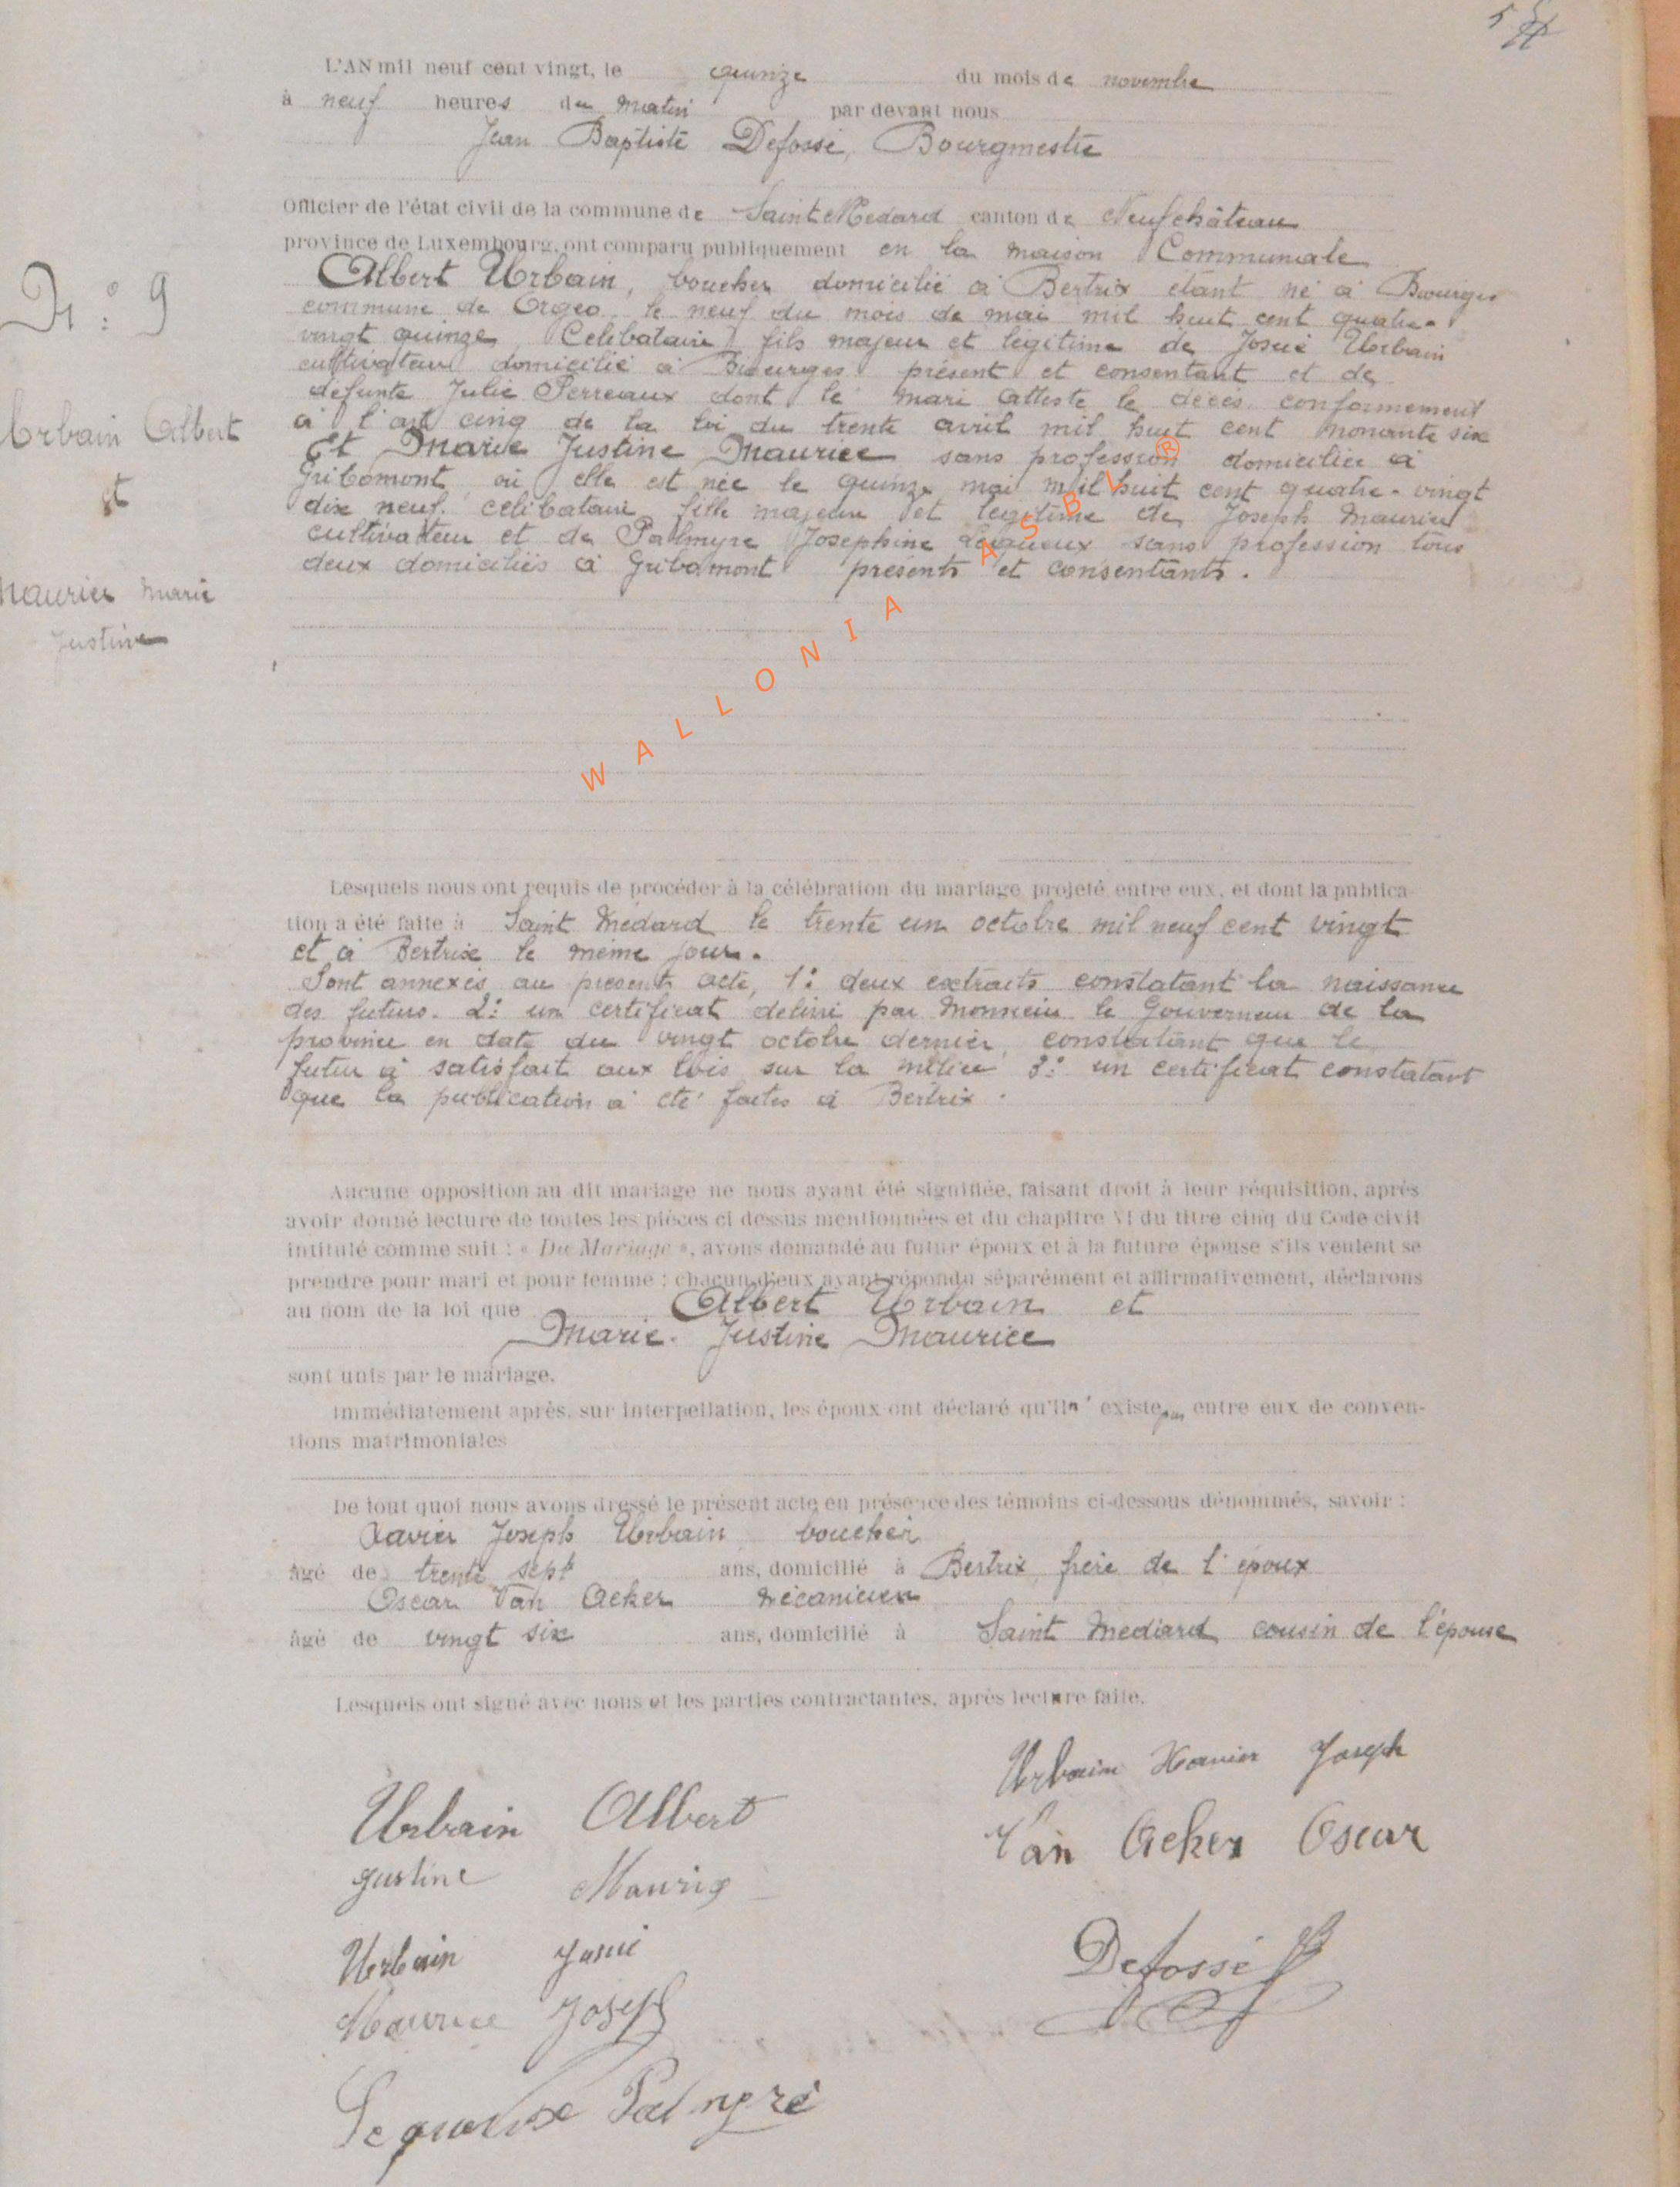 L'AN mil neuf cent vingt, le quinze du mois de novembre
à neuf heures du matin par devant nous
Jean Baptiste Defossé, Bourgmestre
Officier de l'état civil de la commune de Saint Médard canton de Neufchâteau
province de Luxembourg, ont comparu publiquement en la maison Communale
Albert Urbain, boucher domicilié à Bertrix étant né à Biourges
commune de Orgeo le neuf du mois de mai mil huit cent quatre-
vingt quinze, Célibataire fils majeur et légitime de Josué Urbain
cultivateur domicilié à Biourges présent et consentant et de
défunte Julie Perreaux dont le mari atteste le décès conformement
à l'art cinq de la loi du trente avril mil huit cent nonante six
Et Marie Justine Maurice sans profession domiciliée à
Gribômont où elle est née le quinze mai mil huit cent quatre-vingt
dix neuf. célibataire fille majeure et legitime de Joseph Maurice
cultivateur et de Palmyre Josephine Lequeux sans profession tous
deux domiciliés à Gribomont présents et consentants.
N° : 9
Urbain Albert
et
Maurice Marie
Justine
WALLONIA ASBL ®
Lesquels nous ont requis de procéder à la célébration du mariage projeté entre eux, et dont la publica-
tion a été faite à Saint Médard le trente un octobre mil neuf cent vingt
et à Bertrix le même jour.
Sont annexés au present acte, 1: deux extraits constatant la naissance
des futurs. 2: un certificat délivré par Monsieur le Gouverneur de la
province en date du vingt octobre dernier, constatant que le
futur à satisfait aux lois sur la milice 3: un certificat constatant
que la publication à été faites à Bertrix.
Aucune opposition au dit mariage ne nous ayant été signifiée, faisant droit à leur réquisition, après
avoir donné lecture de toutes les pièces ci dessus mentionnées et du chapitre VI du titre cinq du Code civil
intitulé comme suit : « Du Mariage », avons demandé au futur époux et à la future épouse s'ils veulent se
prendre pour mari et pour femme ; chacun d'eux ayant répondu séparément et affirmativement, déclarons
au nom de la loi que Albert Urbain et
Marie Justine Maurice
sont unis par le mariage.
Immédiatement après, sur interpellation, les époux ont déclaré qu'il n'existe pas entre eux de conven-
tions matrimoniales
De tout quoi nous avons dressé le présent acte en présence des témoins ci-dessous dénommés, savoir :
Xavier Joseph Urbain boucher
âgé de trente sept ans, domicilié à Bertrix frère de l'époux
Oscar Van Acker mécanicien
âgé de vingt six ans, domicilié à Saint Médard cousin de l'épouse
Lesquels ont signé avec nous et les parties contractantes, après lecture faite.
Urbain Xavier Joseph
Urbain Albert
Van Acker Oscar
Justine Maurice
Urbain Josué
Defossé
Maurice Joseph
Lequeux Palmyre